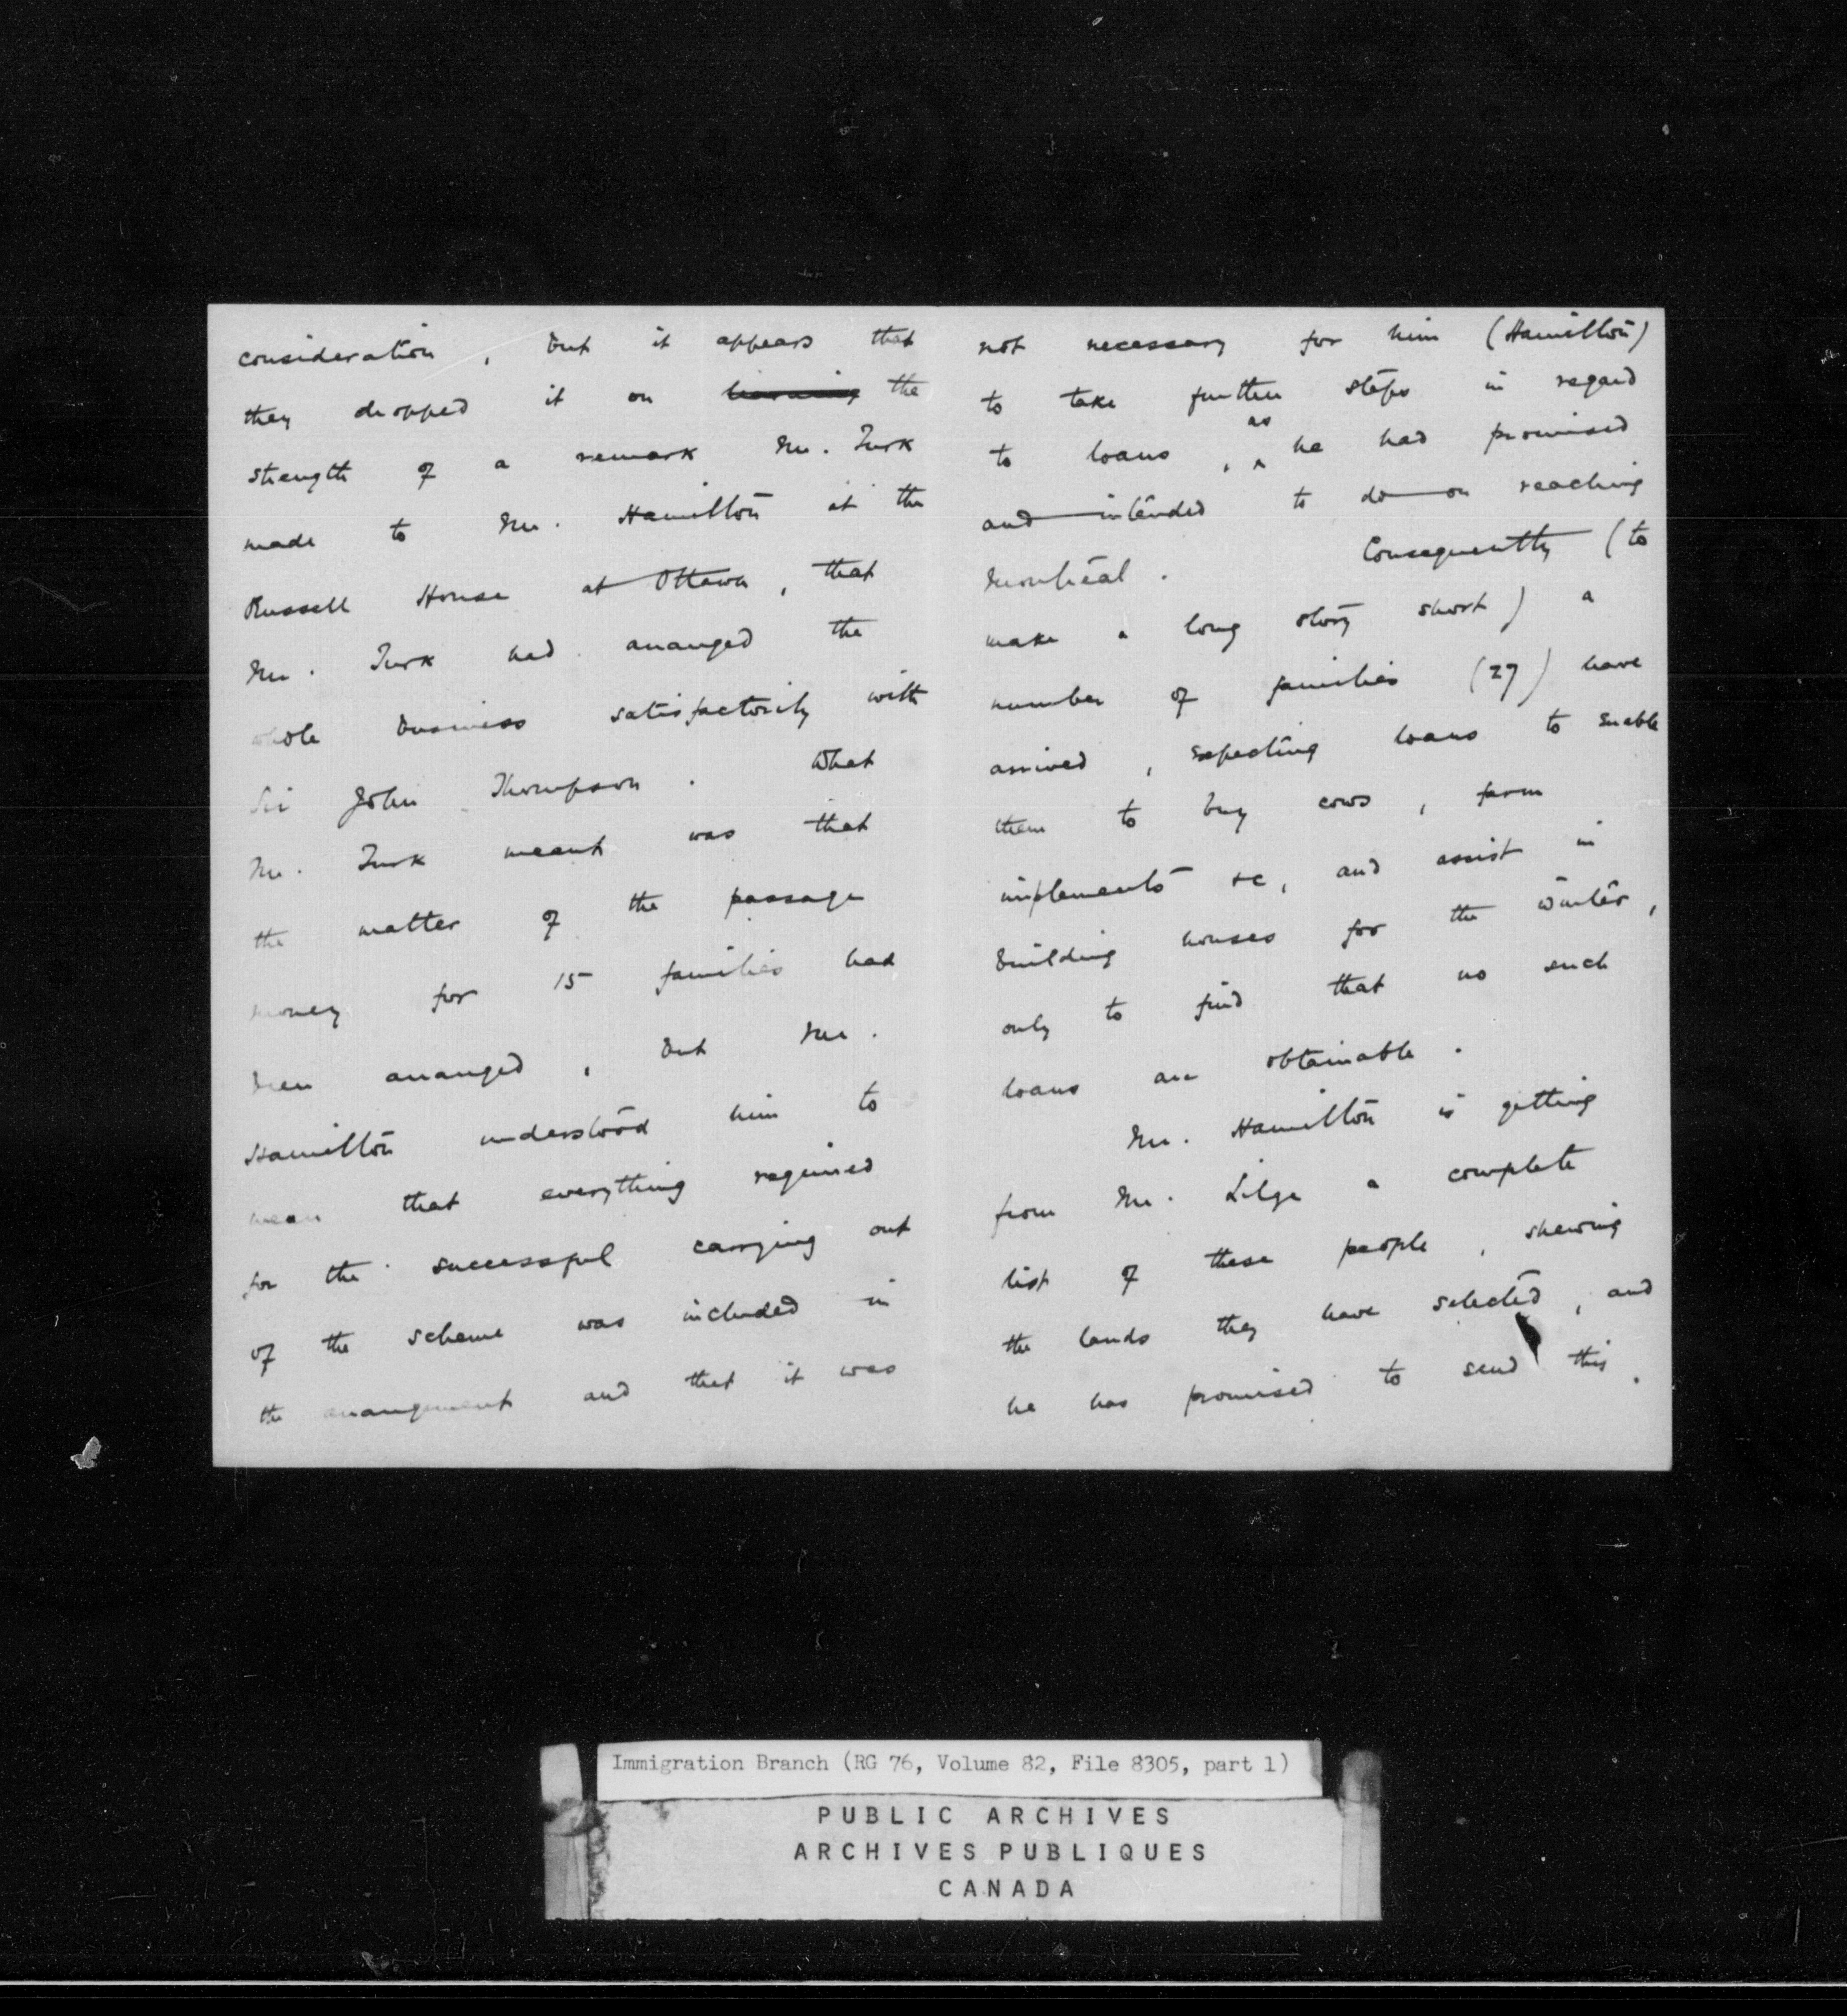 consideration, but it appears that
they dropped it on the
strength of a remark Mr. Turk
made to Mr. Hamilton at the
Russell House at Ottawa, that
Mr. Turk had arranged the
whole business satisfactorily with
Sir John Thompson. What
Mr. Turk meant was that
the matter of the passage
money for 15 families had
been arranged, but Mr.
Hamilton understood him to
mean that everything required
for the successful carrying out
of the scheme was included in
the arrangement and that it was
not necessary for him (Hamilton)
to take further steps in regard
to loans, as he had promised
and intended to do on reaching
Montreal. Consequently (to
make a long story short) a
number of families (27) have
arrived, expecting loans to enable
them to buy cows, farm
implements &c, and assist in
building houses for the winter,
only to find that no such
loans are obtainable.
Mr. Hamilton is getting
from Mr. Lilge a complete
list of these people, shewing
the lands they have selected, and
he has promised to send this.
Immigration Branch (RG 76, Volume 82, File 8305, part 1)
PUBLIC ARCHIVES
ARCHIVES PUBLIQUES
CANADA